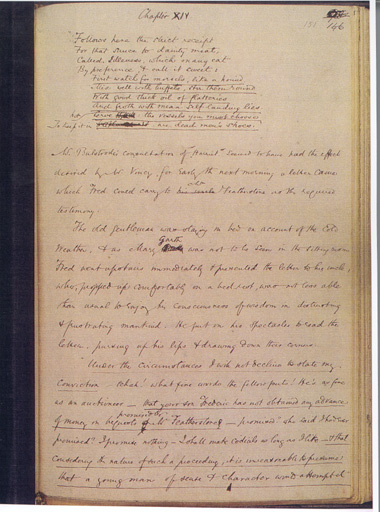 Chapter XIV
166
"Follows here the strict receipt
For that sauce for dainty meat,
Called Idleness, which many eat
By preference, & call it sweet:
First watch for morsels, like a hound
Mix well with buffets, stir them round
With good thick oil of flatteries
And froth with mean self-lauding lies
Serve warm: the vessels you must choose
To keep it in are dead men's shoes.
Mr. Bulstrode's consultation of Harriet seemed to have had the effect
desired by Mr. Vincy, for early the next morning a letter came
which Fred could carry to Mr. Featherstone as the required
testimony.
The old gentleman was staying in bed on account of the cold
weather, & as Mary Garth was not to be seen in the sitting-room
Fred went upstairs immediately & presented the letter to his uncle,
who, propped up comfortably on a bed-rest, was not less able
than usual to enjoy his consciousness of wisdom in distrusting
& frustrating mankind. He put on his spectacles to read the
letter, pursing up his lips & drawing down their corners.
"Under the circumstances I will not decline to state my
conviction – tchah! what fine words the fellow puts! He's as fine
as an auctioneer – that your son Frederic has not obtained any advance
of money on bequests promised by Mr. Featherstone – promised? who said I had ever
promised? I promise nothing – I shall make codicils as long as I like – & that
considering the nature of such a proceeding, it is unreasonable to presume
that a young man of sense & character would attempt it